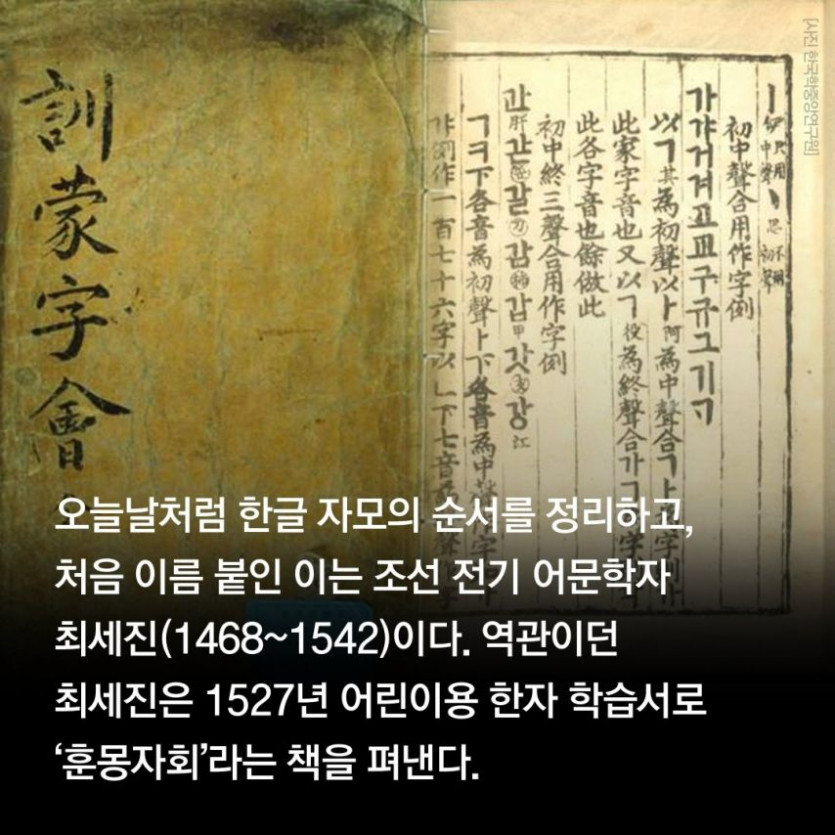 訓蒙字會
[사진 한국학중앙연구원]
ㅣ 伊只用中聲 ㆍ 思不用初聲
初中聲合用作字例
가갸거겨고교구규그기ᄀᆞ
以ㄱ其為初聲以ㅏ阿為中聲合ㄱㅏ
此家字音也又以ㄱ役為終聲合가ㄱ
此各字音也餘倣此
初中終三聲合用作字例
간肝갇갈刀감柿갑甲갓강江
ㄱㅋ下各音為初聲ㅏ下各音為中
갸例作一百七十六字以ㄴ下七音
오늘날처럼 한글 자모의 순서를 정리하고,
처음 이름 붙인 이는 조선 전기 어문학자
최세진(1468~1542)이다. 역관이던
최세진은 1527년 어린이용 한자 학습서로
‘훈몽자회’라는 책을 펴낸다.